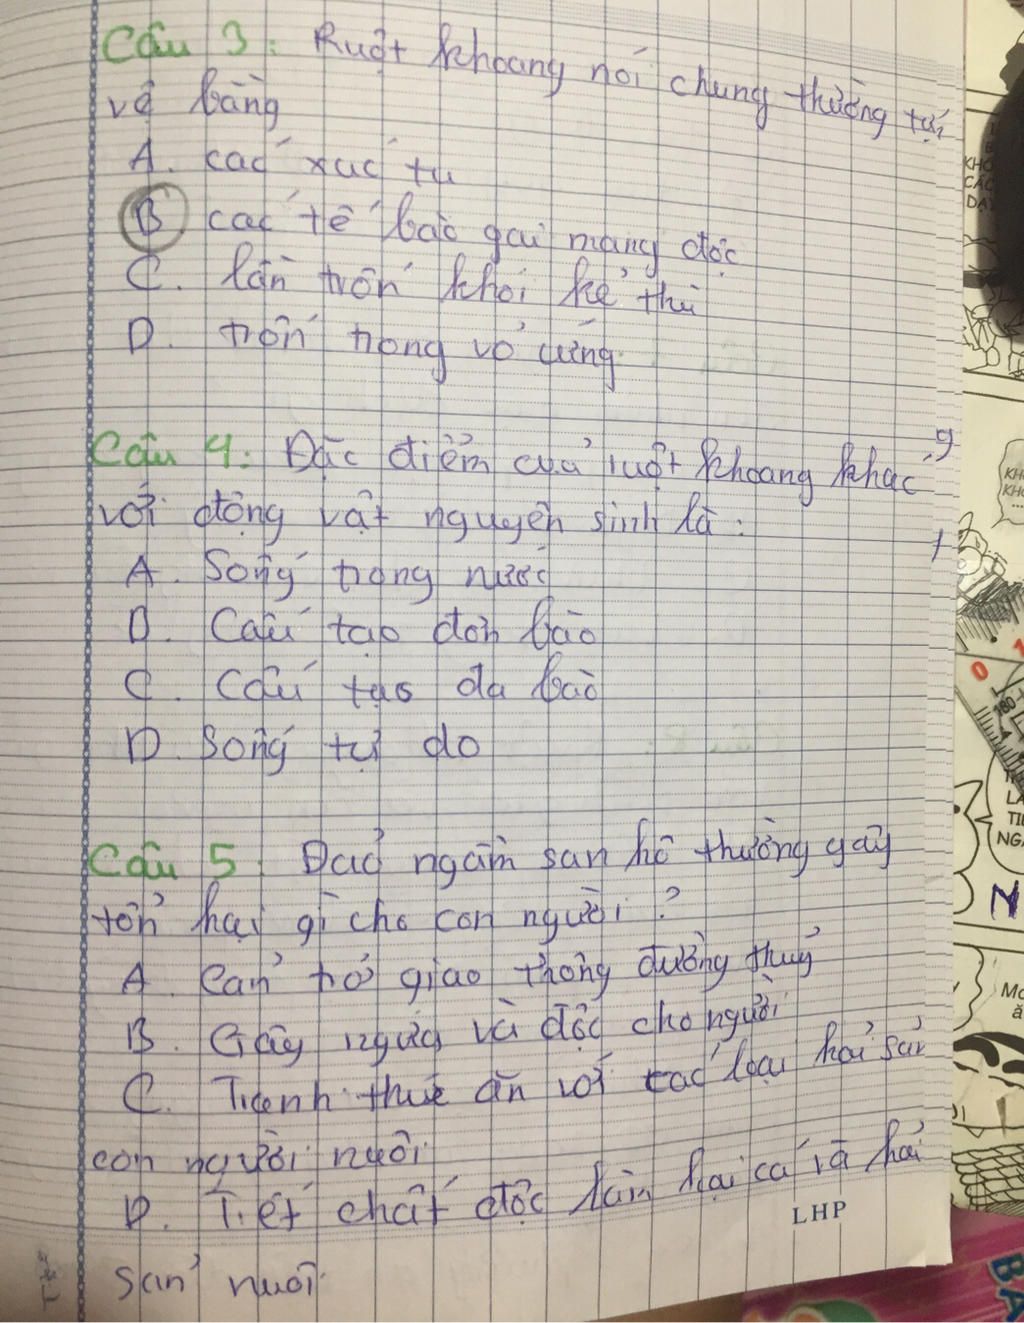 Câu 3: Ruột khoang nói chung thường tự
vệ bằng
A. các xúc tu
B các tế bào gai mang độc
C. lẩn trốn khỏi kẻ thù
D. trốn trong vỏ cứng
Câu 4: Đặc điểm của ruột khoang khác
với động vật nguyên sinh là:
A. Sống trong nước
B. Cấu tạo đơn bào
C. Cấu tạo đa bào
D. Sống tự do
Câu 5: Đảo ngầm san hô thường gây
tổn hại gì cho con người?
A. Cản trở giao thông đường thuỷ
B. Gây ngứa và độc cho người
C. Tranh thức ăn với các loại hải sản
con người nuôi
D. Tiết chất độc làm hại cá và hải
sản nuôi
LHP